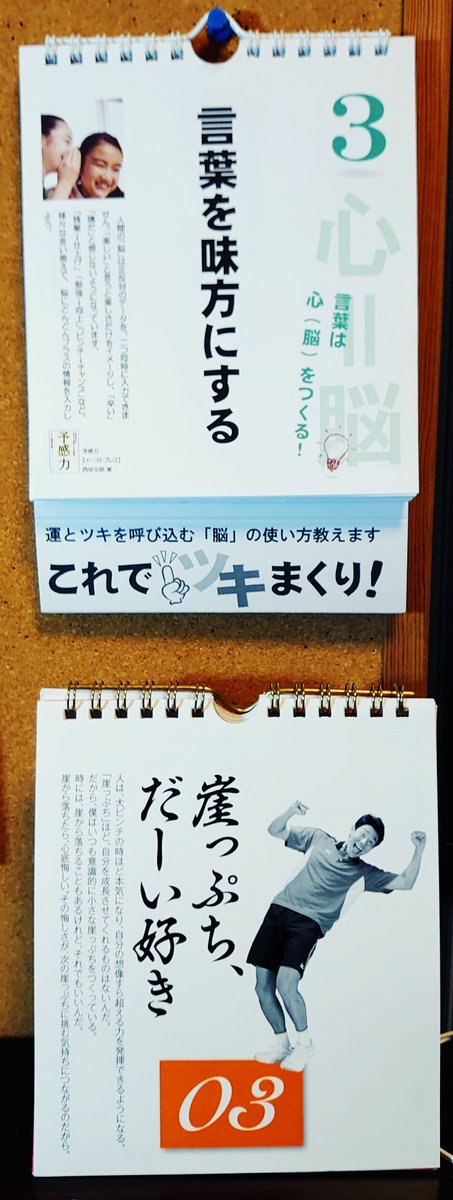 3
心＝脳
言葉は
心（脳）をつくる！
言葉を味方にする
人間の「脳」は正反対のデータを、二つ同時に入力できま
せん。「楽しい」と言うと楽しさだけをイメージし、「辛い」
「嫌だ」と感じないようになっています。
「残業＝仕上げ」「勉強＝向上」「ピンチ＝チャンス」など、
様々な言い換えで、脳にどんどんプラスの情報を入力し
よう。
予感力
予感力
【イースト・プレス】
西田文郎 著
運とツキを呼び込む「脳」の使い方教えます
これでツキまくり！
崖っぷち、
だーい好き
人は、大ピンチの時ほど本気になり、自分の想像すら超える力を発揮できるようになる。
「崖っぷち」ほど、自分を成長させてくれるものはないんだ。
だから、僕はいつも意識的に小さな崖っぷちをつくっている。
時には、崖から落ちることもあるけれど、それでもいいんだ。
崖から落ちたら、心底悔しい。その悔しさが、次の崖っぷちに挑む気持ちにつながるのだから。
03